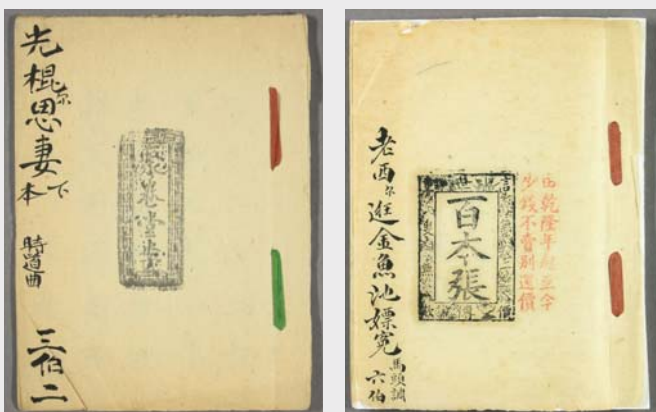 光棍尔思妻
下本
時道曲
三佰二
老西尔逛金魚池嫖寃
馬頭調
六佰
百本張
由乾隆年起至今
少錢不賣別還價